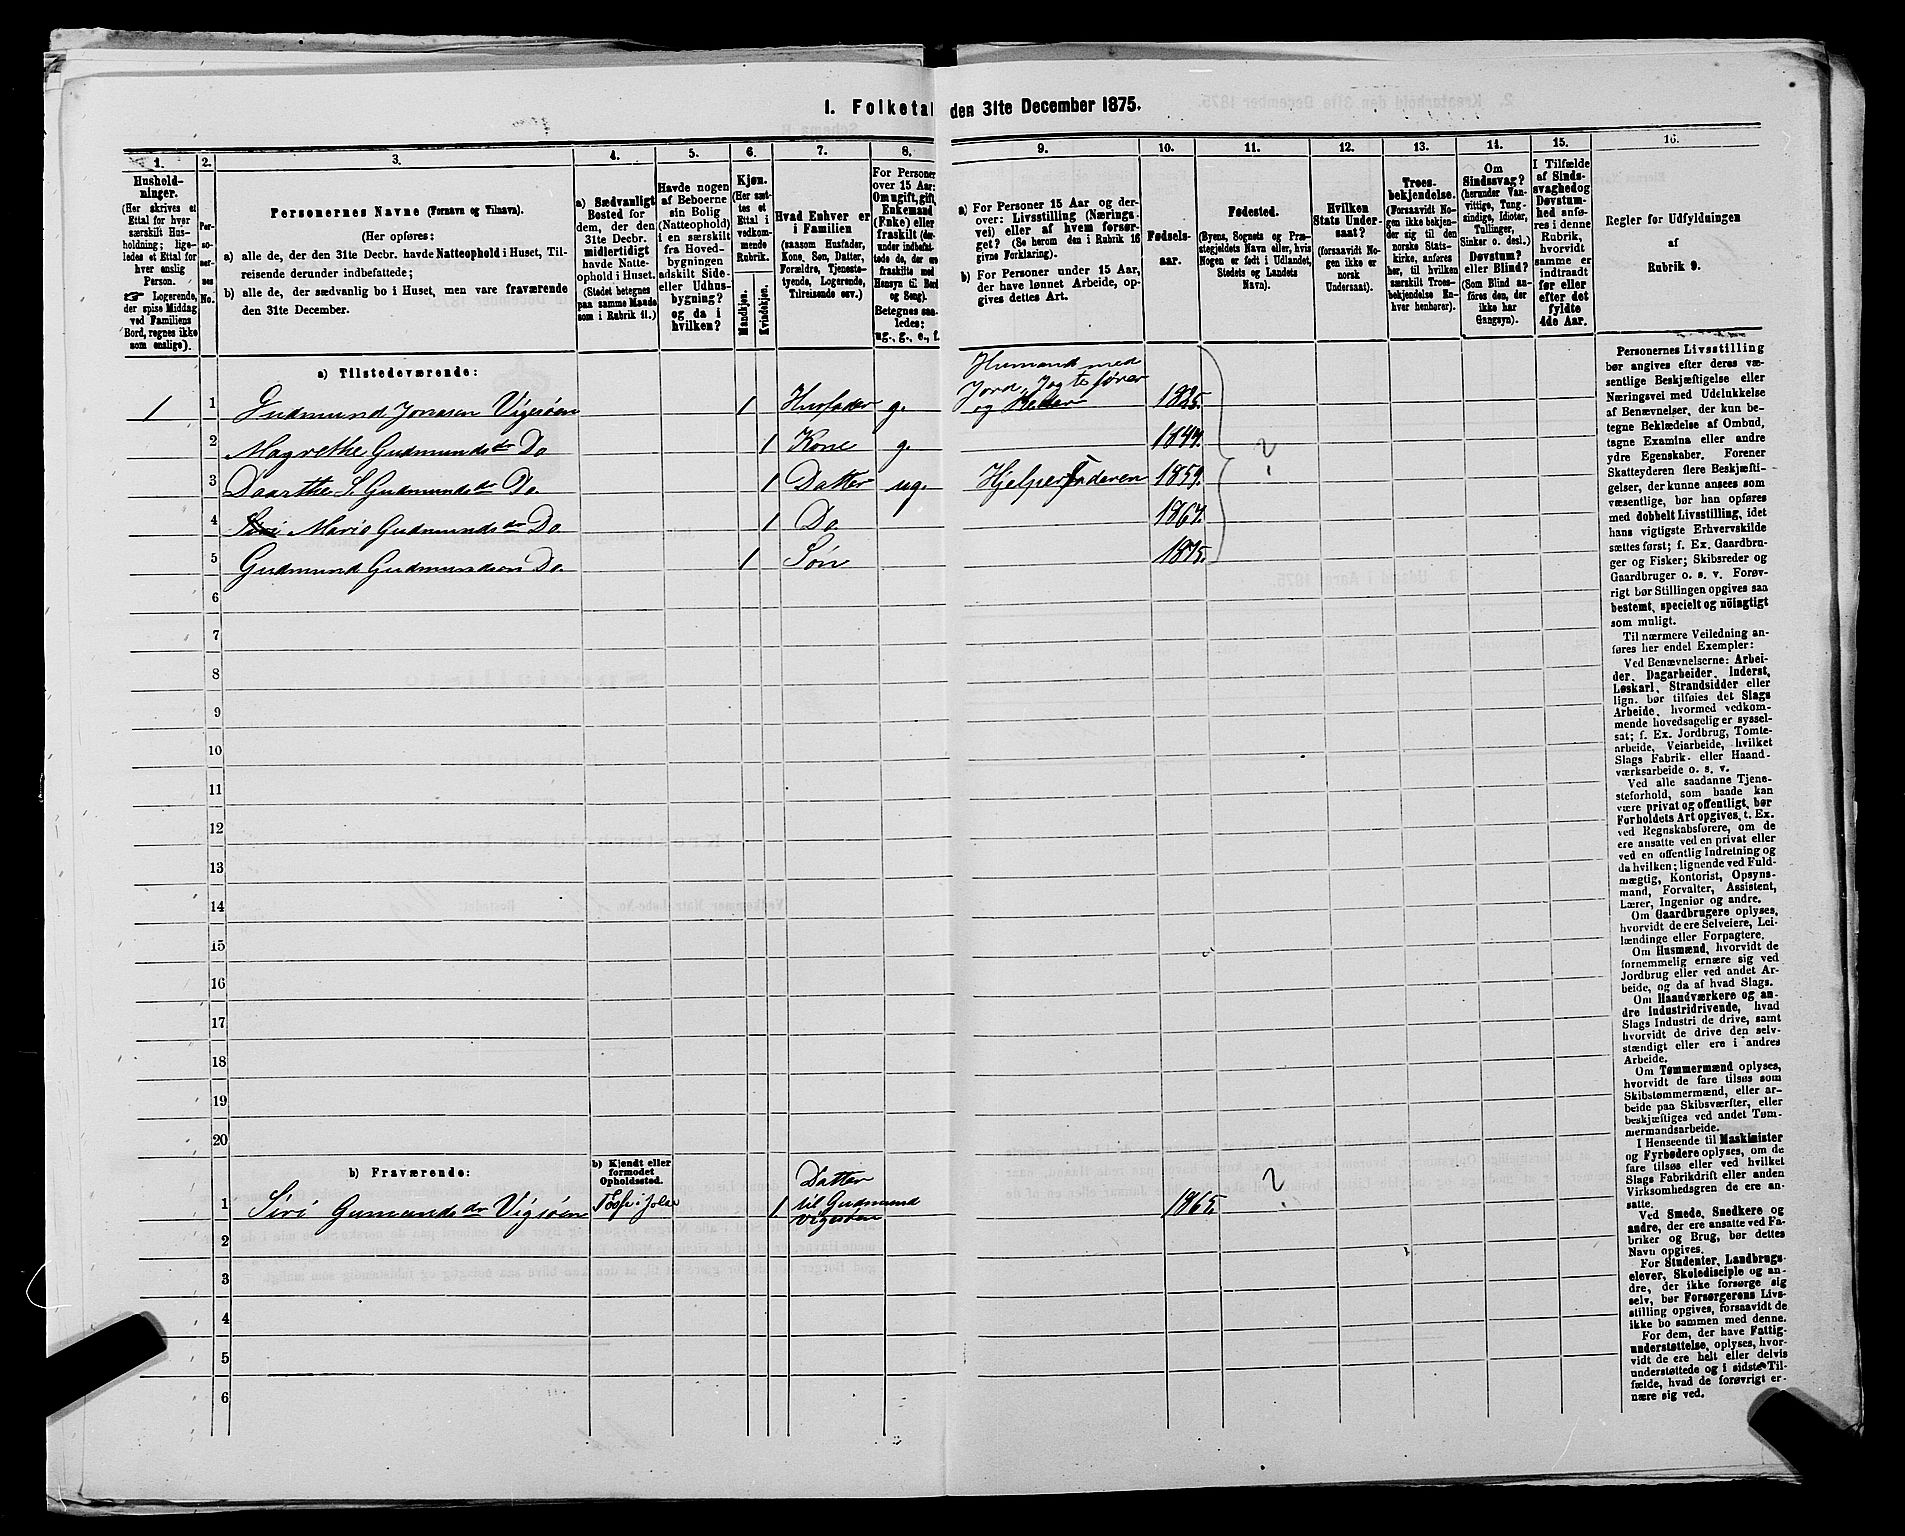 1. Folketal den 31te December 1875.
1.
Hushold-
ninger.
(Her skrives et
Ettal for hver
særskilt Hus-
holdning; lige-
ledes et Ettal for
hver enslig
Person.
☞ Logerende,
der spise Middag
ved Familiens
Bord, regnes ikke
som enslige).
2.
Per-
so-
ner-
nes
No.
3.
Personernes Navne (Fornavn og Tilnavn).
(Her opføres:
a) alle de, der den 31te Decbr. havde Natteophold i Huset, Til-
reisende derunder indbefattede;
b) alle de, der sædvanlig bo i Huset, men vare fraværende
den 31te December.
4.
a) Sædvanligt
Bosted for
dem, der den
31te Decbr.
midlertidigt
havde Natte-
ophold i Huset.
(Stedet betegnes
paa samme Maade
som i Rubrik 11.)
5.
Havde nogen
af Beboerne
sin Bolig
(Natteophold)
i en særskilt
fra Hoved-
bygningen
adskilt Side-
eller Udhus-
bygning?
og da i
hvilken?
6.
Kjøn.
(Her sæt-
tes et
Ettal i
vedkom-
mende
Rubrik.
Mandkjøn.
Kvindekjøn.
7.
Hvad Enhver er
i Familien
(saasom Husfader,
Kone, Søn, Datter,
Forældre, Tjeneste-
tyende, Logerende,
Tilreisende osv.)
8.
For Personer
over 15 Aar:
Om ugift, gift,
Enkemand
(Enke) eller
fraskilt (der-
under indbefat-
tede de, der ere
fraskilte med
Hensyn til Bord
og Seng).
Betegnes saa-
ledes:
ug., g., e., f.
9.
a) For Personer 15 Aar og der-
over: Livsstilling (Nærings-
vei) eller af hvem forsør-
get? (Se herom den i Rubrik 16
givne Forklaring).
b) For Personer under 15 Aar,
der have lønnet Arbeide, op-
gives dettes Art.
10.
Fødsels-
aar.
11.
Fødested.
(Byens, Sognets og Præ-
stegjeldets Navn eller, hvis
Nogen er født i Udlandet,
Stedets og Landets
Navn).
12.
Hvilken
Stats Under-
saat?
(forsaavidt No-
gen ikke er
norsk
Undersaat).
13.
Troes-
bekjendelse.
(Forsaavidt No-
gen ikke bekjen-
der sig til den
norske Stats-
kirke, anføres
her, til hvilken
særskilt Troes-
bekjendelse En-
hver henhører).
14.
Om
Sindssvag?
(herunder Van-
vittige, Tung-
sindige, Idioter,
Tullinger,
Sinker o. desl.)
Døvstum?
eller Blind?
(Som Blind an-
føres den, der
ikke har
Gangsyn).
15.
I Tilfælde
af Sinds-
svaghed og
Døvstum-
hed anfø-
res i denne
Rubrik,
hvorvidt
samme er
indtraadt
før eller
efter det
fyldte
4de Aar.
16.
Regler for Udfyldningen
af
Rubrik 9.
a) Tilstedeværende:
1 1 Gudmund Jonasen Vigesøen 1 Husfader g. Husmand med Jord, Jagtefører og Hedler 1825.
2 Magrethe Gudmundsdr Do 1 Kone g. 1844.
3 Daarthe S. Gudmundsdr Do. 1 Datter ug. Hjelper Faderen 1859.
4 Siri Marie Gudmundsdr Do 1 Do 1867.
5 Gudmund Gudmundson Do. 1 Søn 1875.
?
6
7
8
9
10
11
12
13
14
15
16
17
18
19
20
b) Fraværende:
b) Kjendt eller
formodet
Opholdssted.
1 Siri Gumundsdr Vigsøen 1 Datter til Gudmund Vigesøen 1865. ?
2
3
4
5
6
Personernes Livsstilling
bør angives efter deres væ-
sentlige Beskjæftigelse eller
Næringsvei med Udelukkelse
af Benævnelser, der kun be-
tegne Beklædelse af Ombud,
tagne Examina eller andre
ydre Egenskaber. Forener
Skatteyderen flere Beskjæfti-
gelser, der kunne ansees som
væsentlige, bør han opføres
med dobbelt Livsstilling, idet
hans vigtigste Erhvervskilde
sættes først; f. Ex. Gaardbru-
ger og Fisker; Skibsreder og
Gaardbruger o. s. v. Forøv-
rigt bør Stillingen opgives saa
bestemt, specielt og nöiagtigt
som muligt.
Til nærmere Veiledning an-
føres her endel Exempler:
Ved Benævnelserne: Arbei-
der, Dagarbeider, Inderst,
Løskarl, Strandsidder eller
lign. bør tilføies det Slags
Arbeide, hvormed vedkom-
mende hovedsagelig er syssel-
sat; f. Ex. Jordbrug, Tomte-
arbeide, Veiarbeide, hvilket
Slags Fabrik- eller Haand-
værksarbeide o. s. v.
Ved alle saadanne Tjene-
steforhold, som baade kan
være privat og offentligt, bør
Forholdets Art opgives, t. Ex.
ved Regnskabsførere, om de
ere ansatte ved en privat eller
ved en offentlig Indretning og
da hvilken; lignende ved Fuld-
mægtig, Kontorist, Opsyns-
mand, Forvalter, Assistent,
Lærer, Ingeniør og andre.
Om Gaardbrugere oplyses,
hvorvidt de ere Selveiere, Lei-
lændinge eller Forpagtere.
Om Husmænd, hvorvidt de
fornemmelig ernære sig ved
Jordbrug eller ved andet Ar-
beide, og da af hvad Slags.
Om Haandværkere og an-
dre Industridrivende, hvad
Slags Industri de drive, samt
hvorvidt de drive den selv-
stændigt eller ere i andres
Arbeide.
Om Tømmermænd oplyses,
hvorvidt de fare tilsøs som
Skibstømmermænd, eller ar-
beide paa Skibsværfter, eller
beskjæftiges ved andet Tøm-
mermandsarbeide.
I Henseende til Maskinister
og Fyrbødere oplyses, om de
fare tilsøs eller ved hvilket
Slags Fabrikdrift eller anden
Virksomhedsgren de ere an-
satte.
Ved Smede, Snedkere og
andre, der ere ansatte ved Fa-
briker og Brug, bør dettes
Navn opgives.
For Studenter, Landbrugs-
elever, Skoledisciple og an-
dre, der ikke forsørge sig
selv, bør Forsørgerens Livs-
stilling opgives, forsaavidt de
ikke bo sammen med denne.
For dem, der have Fattig-
understøttelse, oplyses, hvor-
vidt de ere helt eller delvis
understøttede og i sidste Til-
fælde, hvad de forøvrigt er-
nære sig ved.